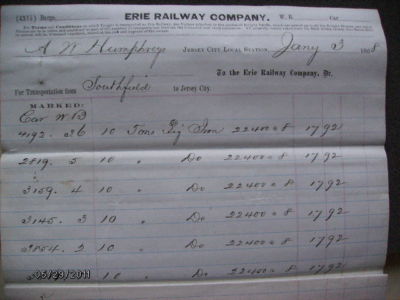 (4315) Barge. ERIE RAILWAY COMPANY. W. B. Car
A W Humphrey Jersey City Local Station, Jany 3 18 8
To the Erie Railway Company, Dr.
For Transportation from Southfield to Jersey City.
MARKED:
Car W B
4192. 26 10 Tons Pig Iron 22400 @ 8 17 92
2819. 5 10 " Do 22400 @ 8 17 92
3159. 4 10 " Do 22400 @ 8 17 92
3145. 3 10 " Do 22400 @ 8 17 92
3854. 2 10 " Do 22400 @ 8 17 92
10 " Do 22400 @ 8 17 92
05/23/2011